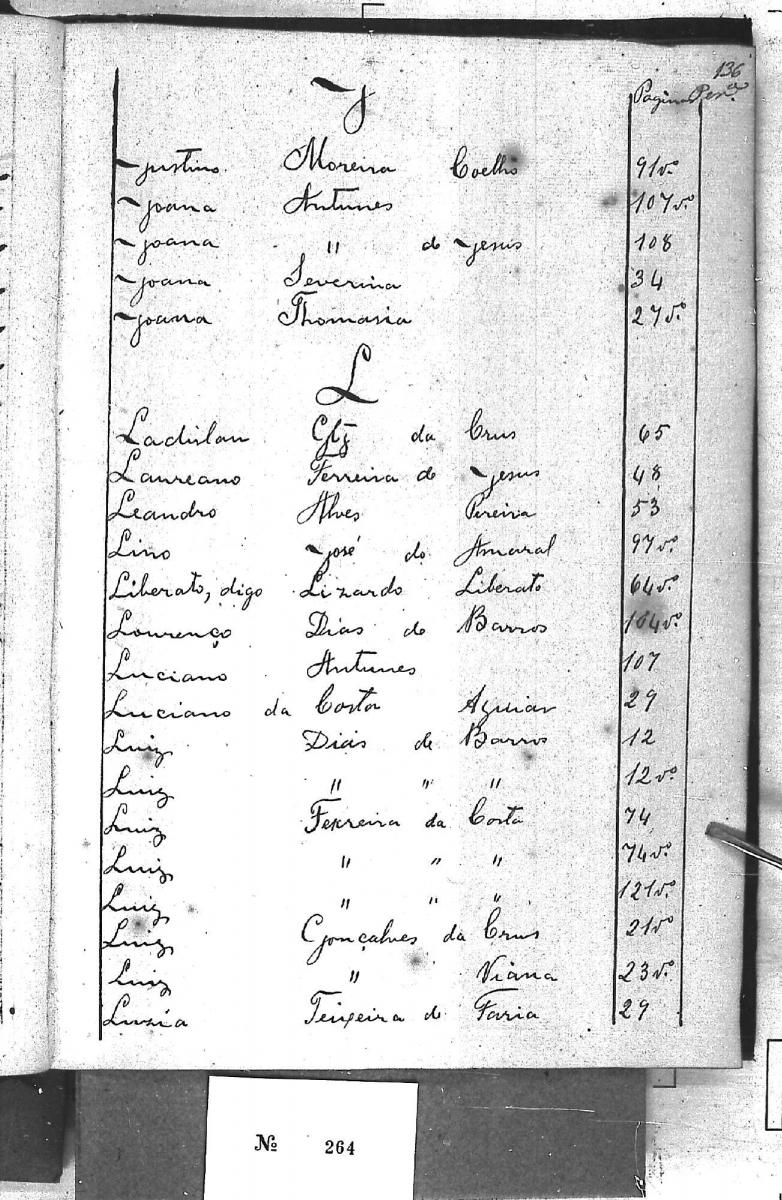 136
J
Pagina Per.ª
Justino Moreira Coelho 91v.º
Joana Antunes 107v.º
Joana " de Jesus 108
Joana Severina 34
Joana Thomasia 27v.º
L
Ladislau Glz da Crus 65
Laureano Ferreira de Jesus 48
Leandro Alves Pereira 53
Lino José do Amaral 97v.º
Liberato, digo Lizardo Liberato 64v.º
Lourenço Dias de Barros 104v.º
Luciano Antunes 107
Luciano da Costa Aguiar 29
Luiz Dias de Barros 12
Luiz " " " 12v.º
Luiz Ferreira da Costa 74
Luiz " " " 74v.º
Luiz " " " 121v.º
Luiz Gonçalves da Crus 21v.º
Luiz " Viana 23v.º
Luzia Teixeira de Faria 29
Nº 264